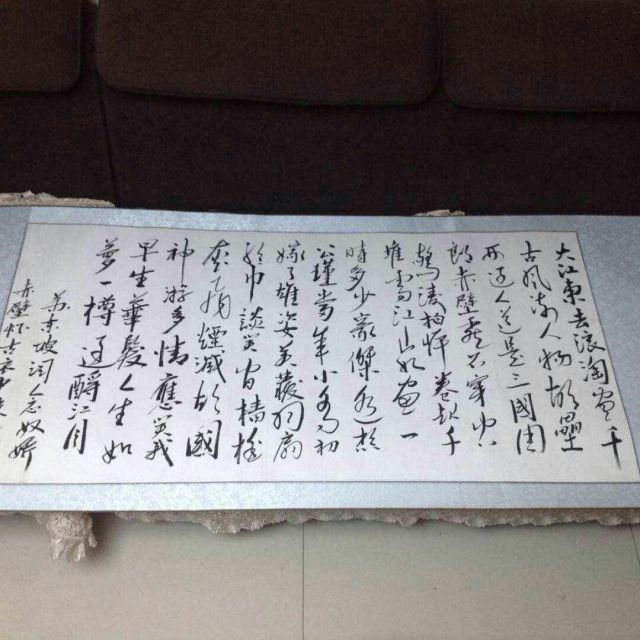 大江東去浪淘盡千
古風流人物故壘
西邊人道是三國周
郎赤壁亂石穿空
驚濤拍岸卷起千
堆雪江山如畫一
時多少豪傑遙想
公瑾當年小喬初
嫁了雄姿英發羽扇
綸巾談笑間檣櫓
灰飛煙滅故國
神游多情應笑我
早生華髮人生如
夢一樽還酹江月
蘇東坡詞念奴嬌
赤壁懷古